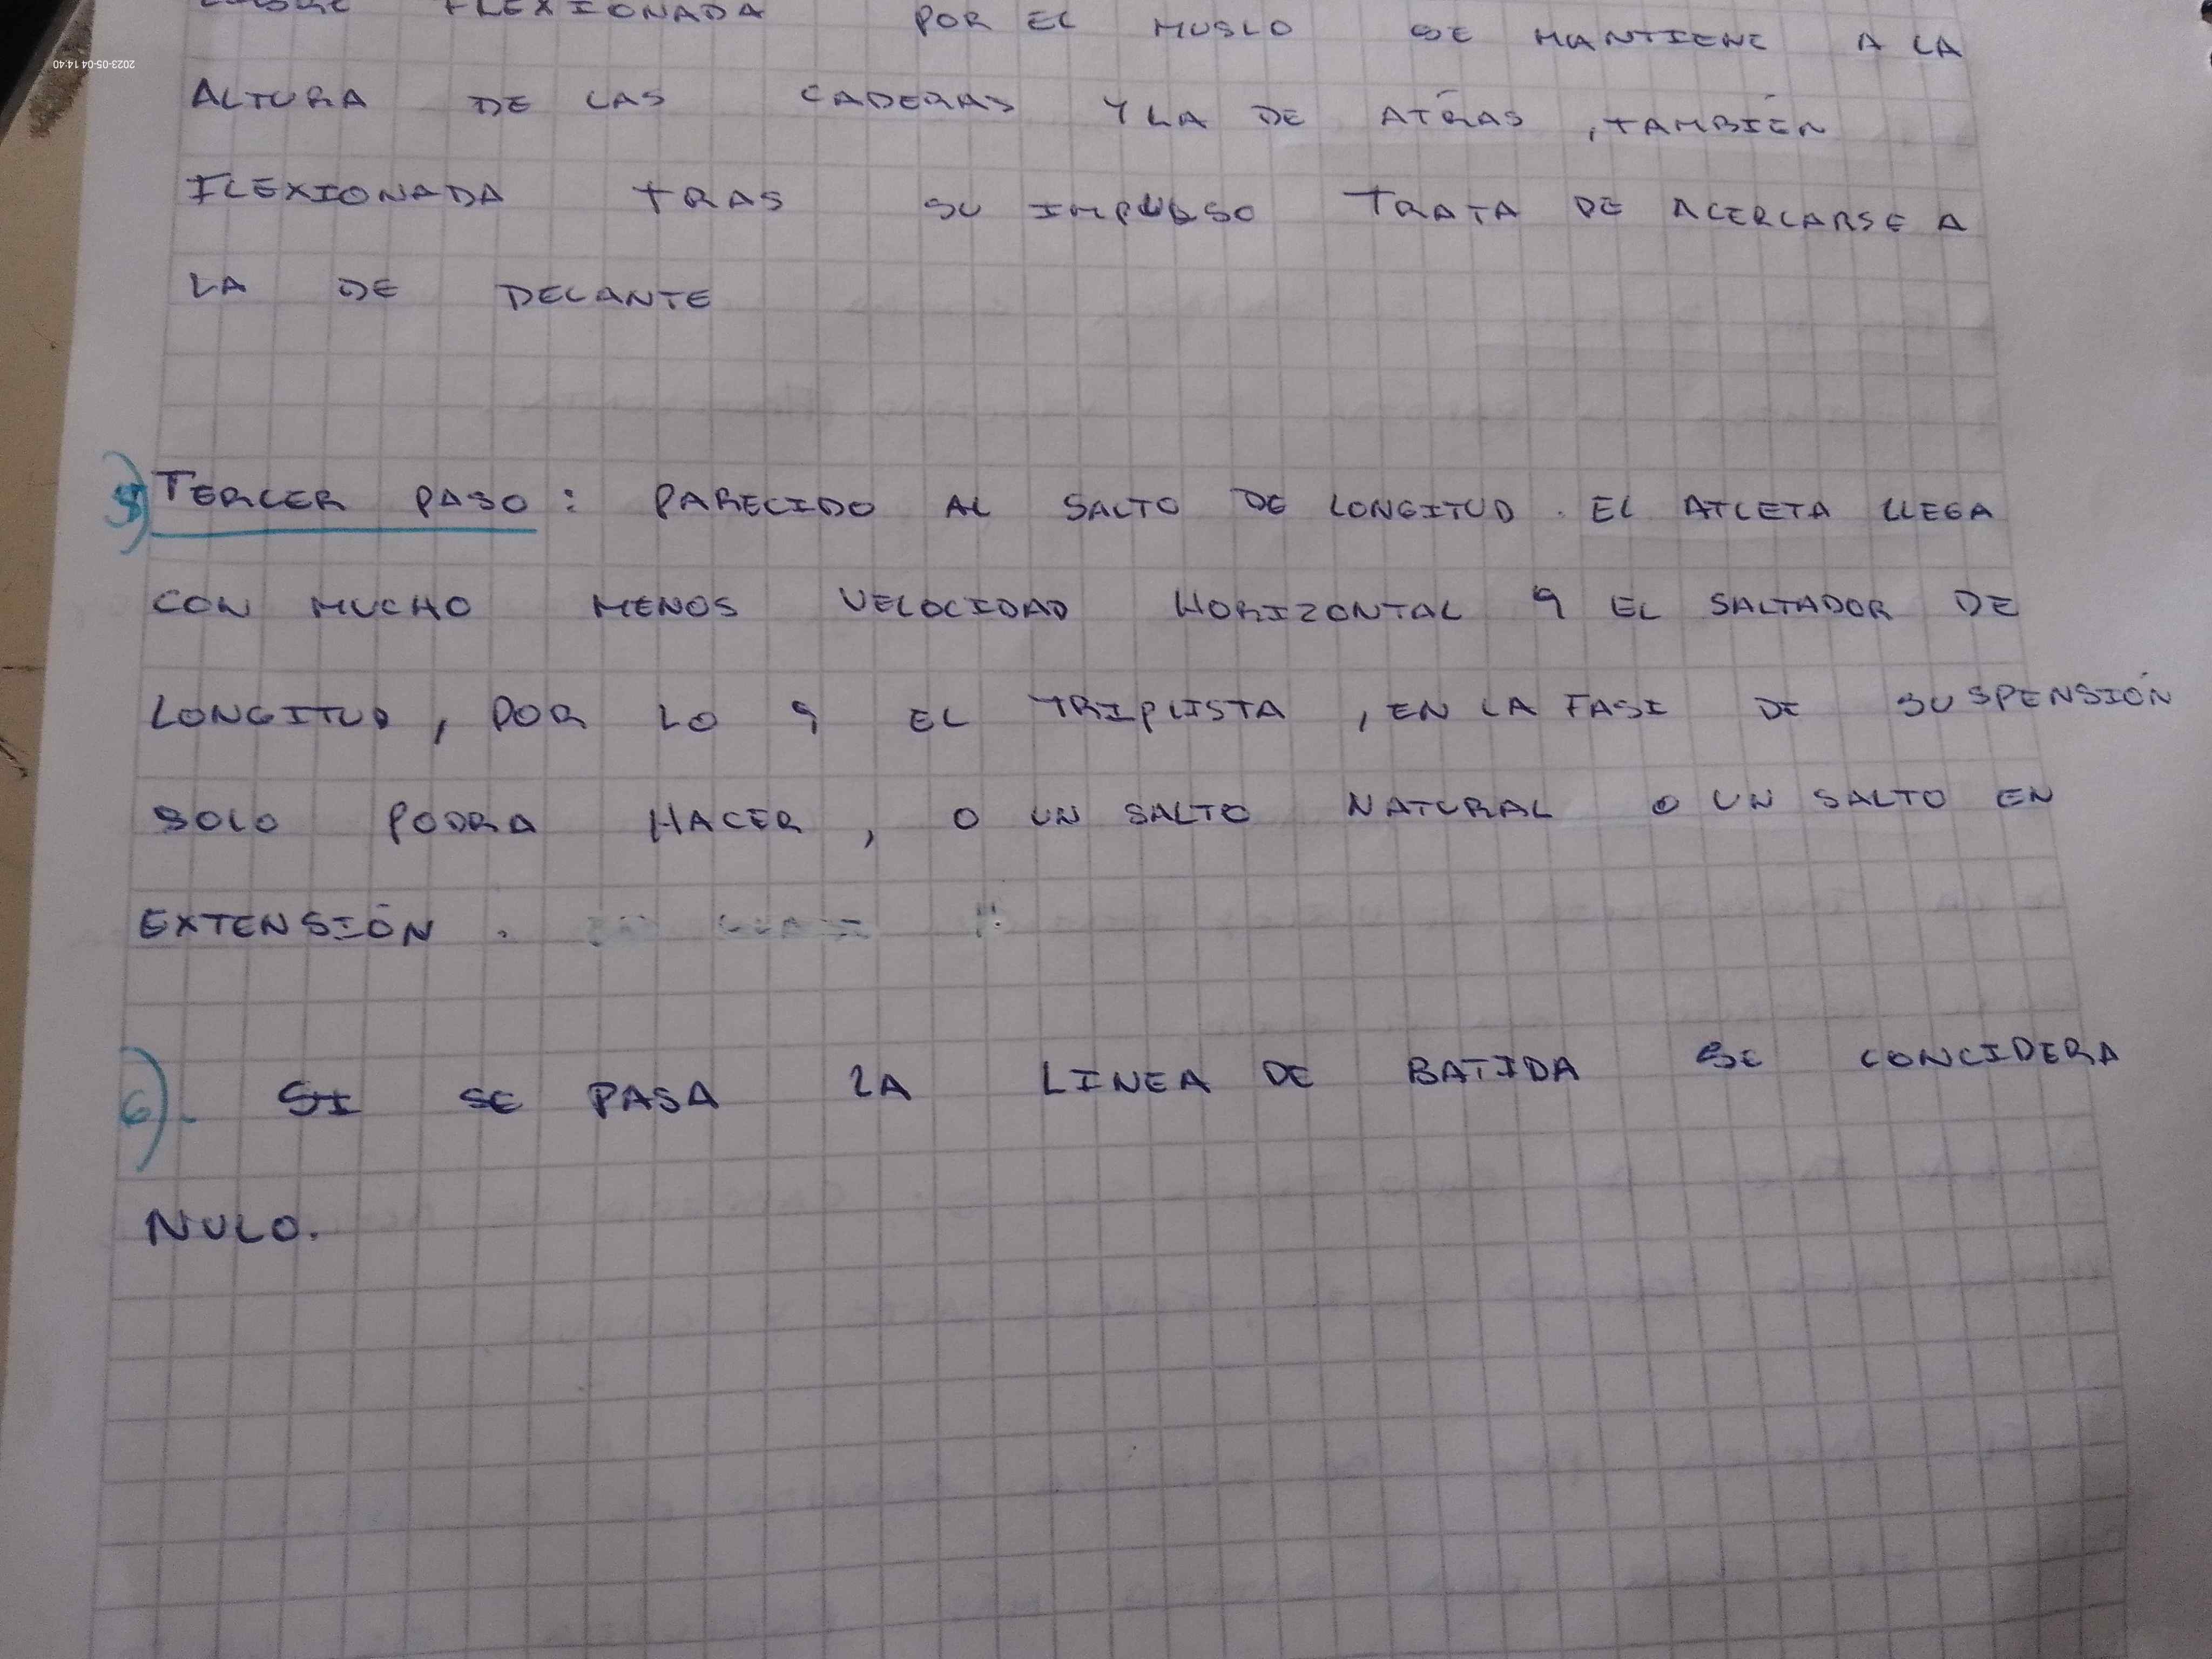 FLEXIONADA POR EL MUSLO SE MANTIENE A LA
2023-05-04 14:40
ALTURA DE LAS CADERAS Y LA DE ATRÁS , TAMBIÉN
FLEXIONADA TRAS SU IMPULSO TRATA DE ACERCARSE A
LA DE DELANTE
5) TERCER PASO : PARECIDO AL SALTO DE LONGITUD . EL ATLETA LLEGA
CON MUCHO MENOS VELOCIDAD HORIZONTAL q EL SALTADOR DE
LONGITUD , POR LO q EL TRIPLISTA , EN LA FASE DE SUSPENSIÓN
SOLO PODRA HACER , O UN SALTO NATURAL O UN SALTO EN
EXTENSIÓN .
6). SI SE PASA LA LINEA DE BATIDA SE CONCIDERA
NULO.